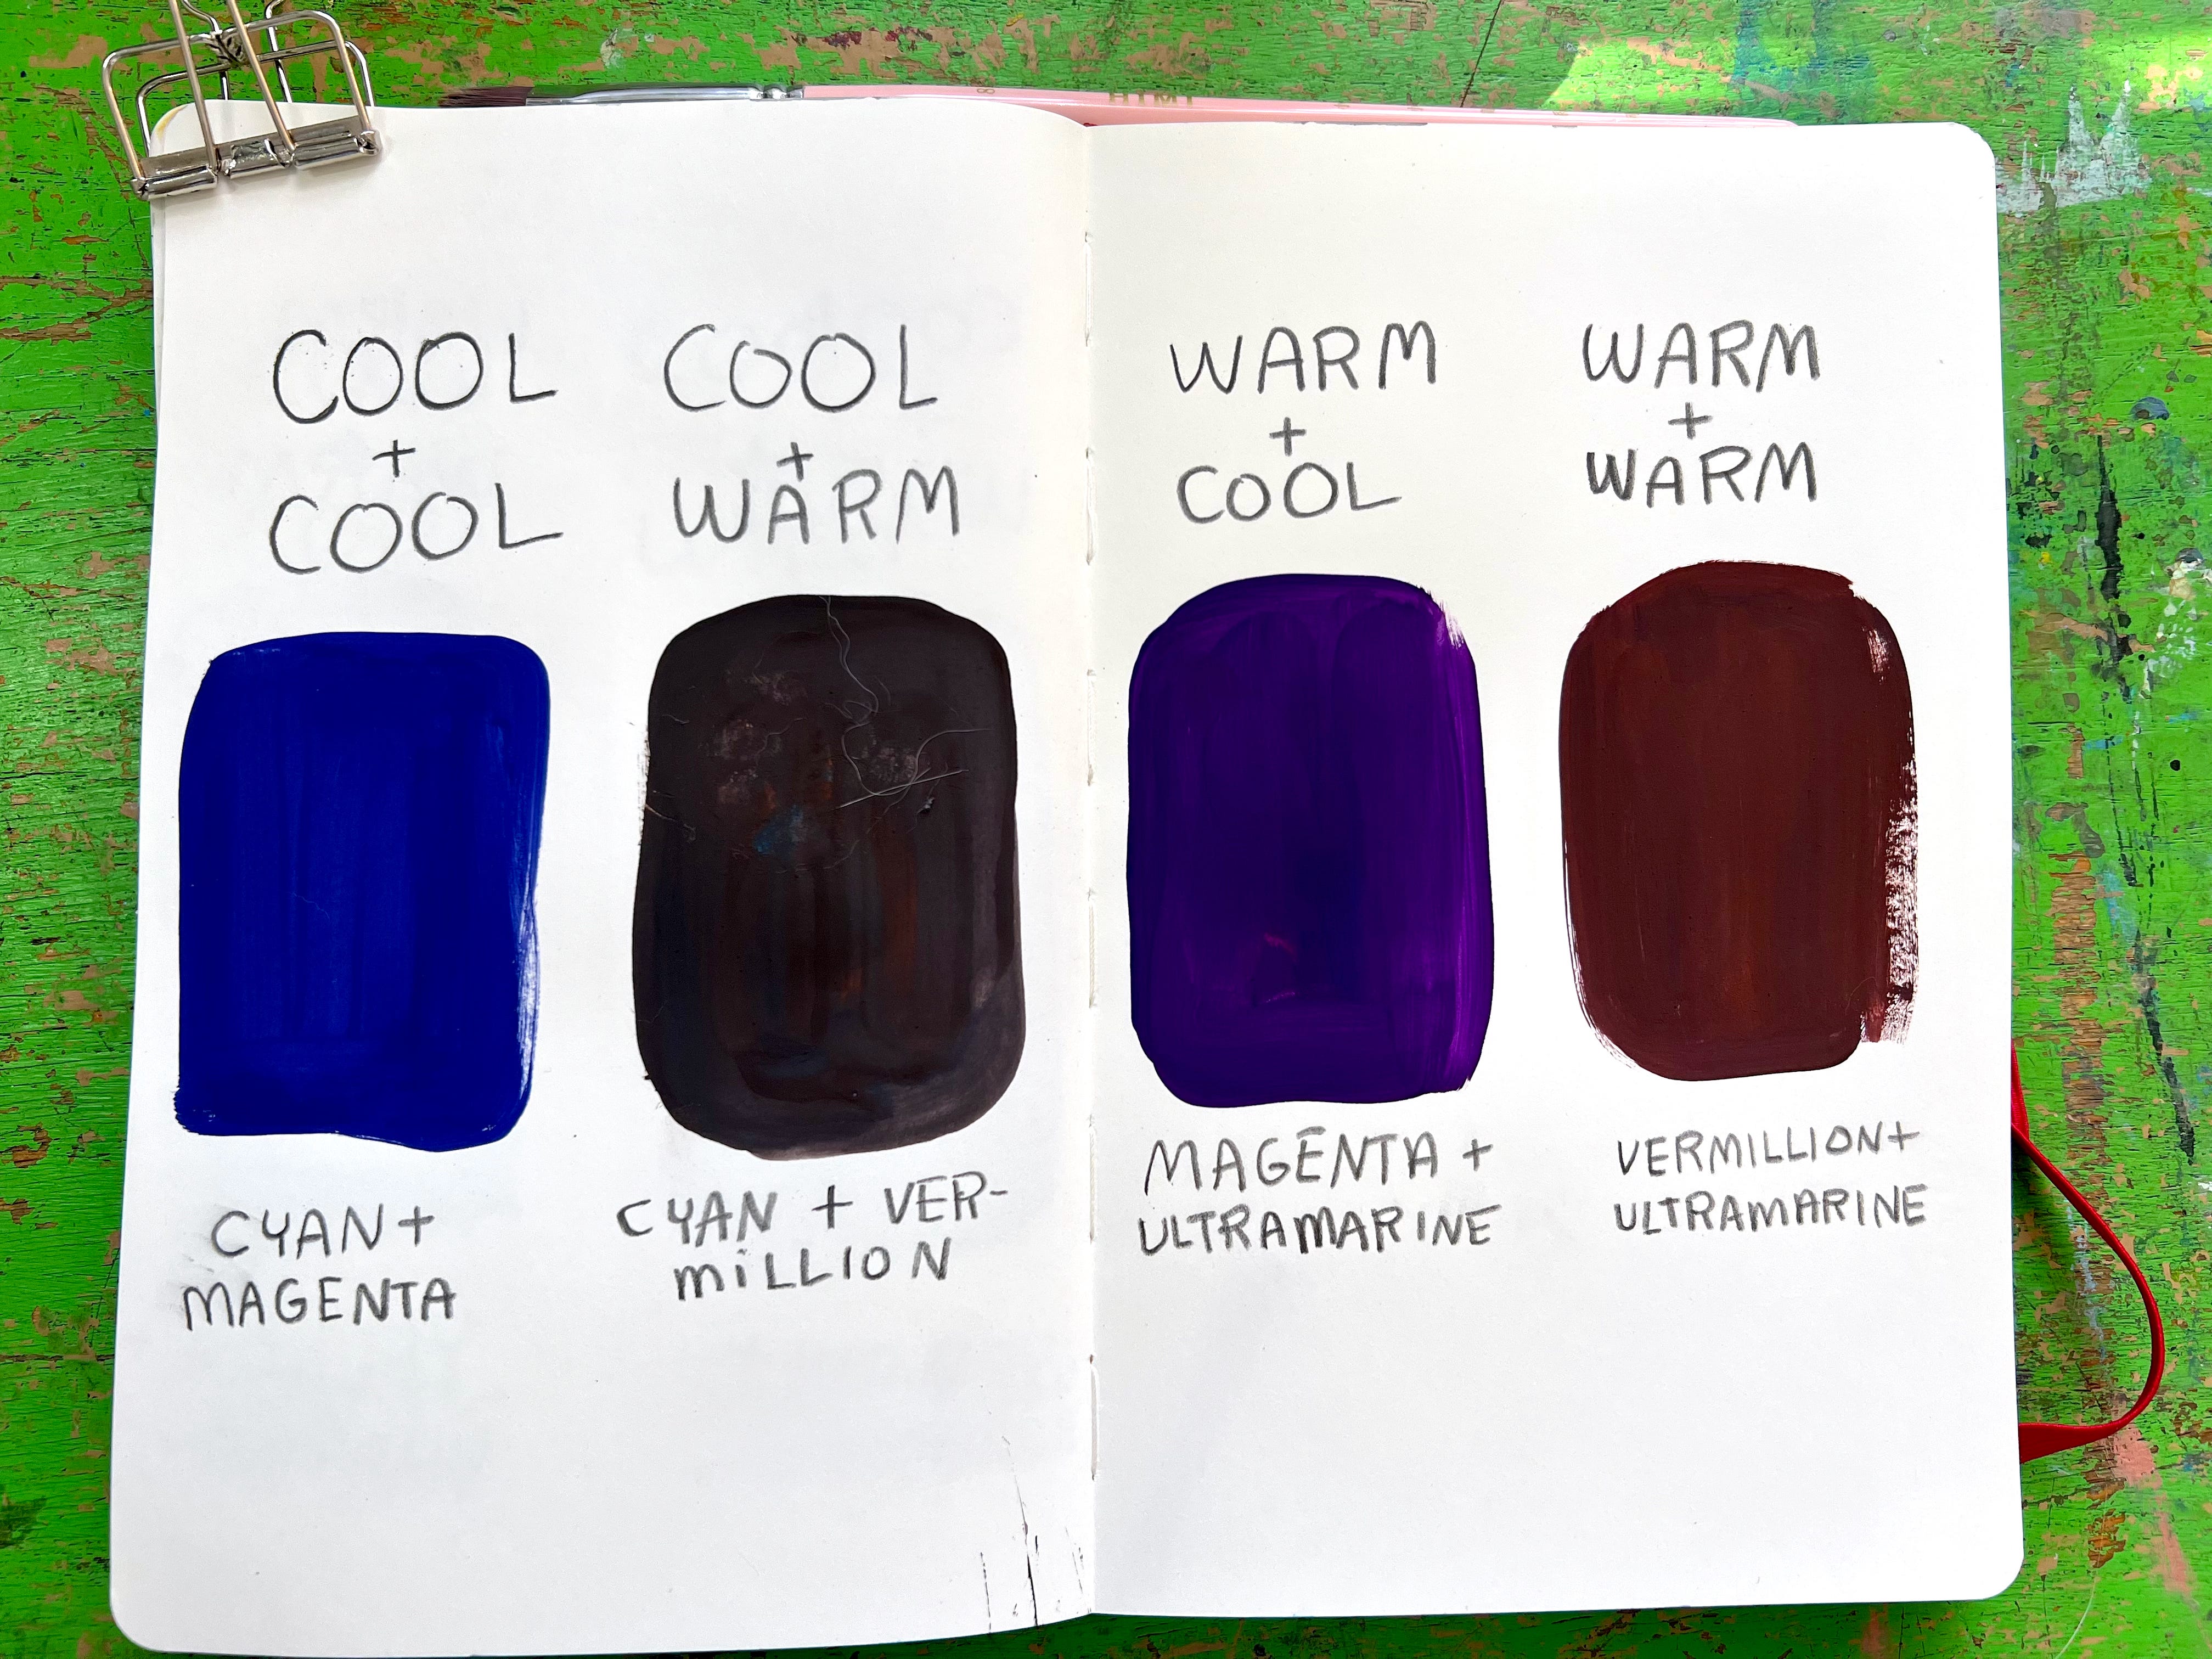 HIMI
8
COOL
+
COOL
CYAN+
MAGENTA
COOL
+
WARM
CYAN + VER-
MiLLION
WARM
+
COOL
MAGENTA +
ULTRAMARINE
WARM
+
WARM
VERMILLION+
ULTRAMARINE